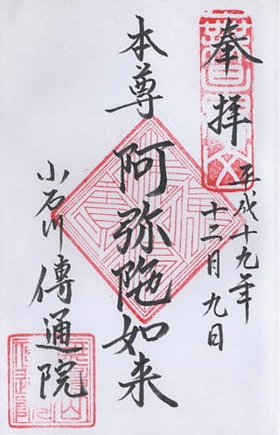 奉拝
平成十九年
十二月九日
本尊
阿弥陀如来
小石川傳通院